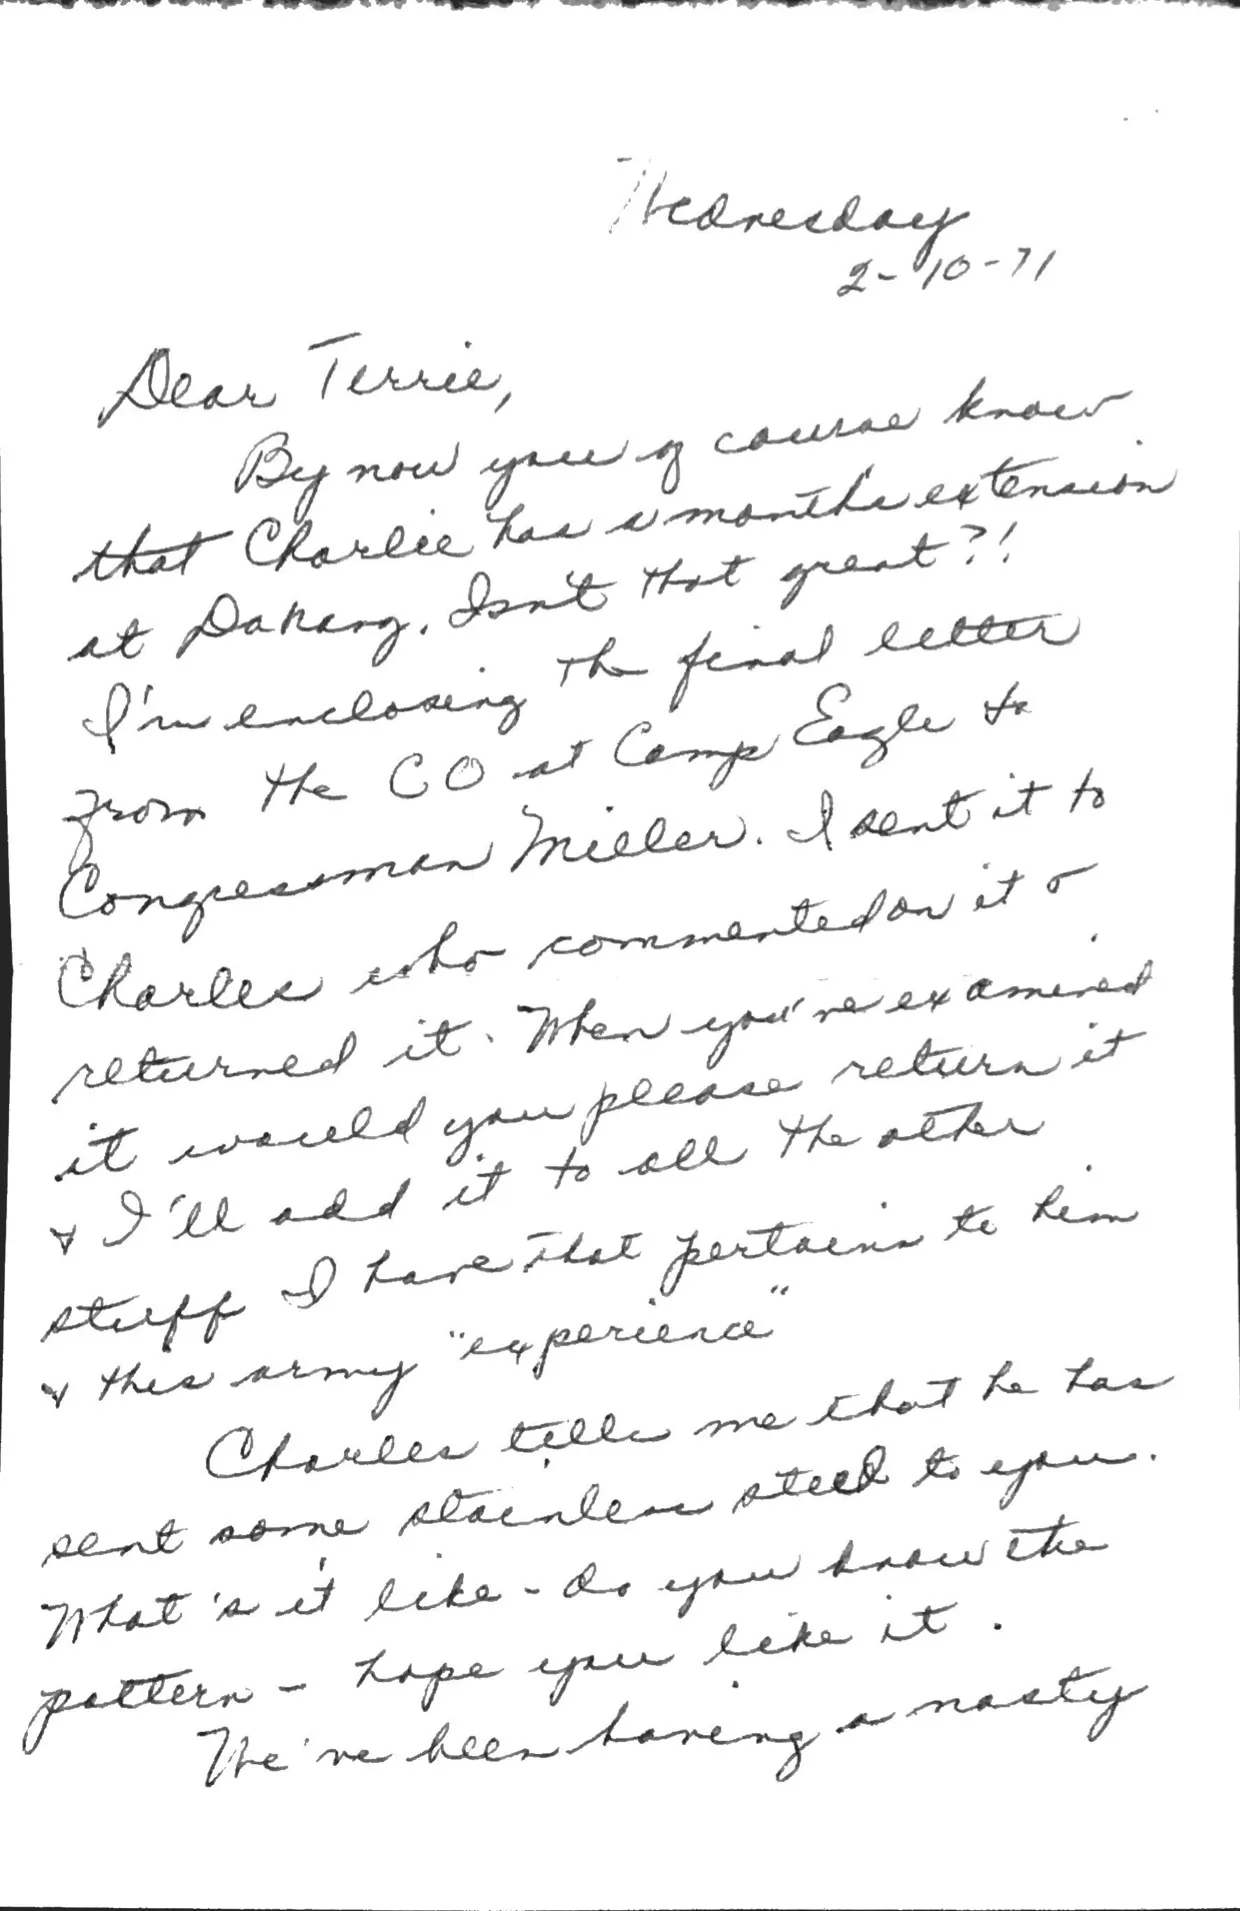 Wednesday
2-10-71
Dear Terrie,
By now you of course know
that Charlie has a month's extension
at DaNang. Isn't that great?!
I'm enclosing the final letter
from the CO at Camp Eagle to
Congressman Miller. I sent it to
Charles who commented on it &
returned it. When you've examined
it would you please return it
& I'll add it to all the other
stuff I have that pertains to him
& this army "experience"
Charles tells me that he has
sent some stainless steel to you.
What's it like - do you know the
pattern - hope you like it.
We've been having a nasty